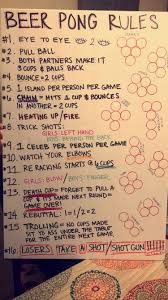 BEER PONG RULES
#1. EYE TO EYE
2. PULL BALL
3. BOTH PARTNERS MAKE IT
3 CUPS & BALLS BACK
4. BOUNCE = 2 CUPS
5. 1 ISLAND PER PERSON PER GAME
6. CHAIN = HITS 1 CUP & BOUNCES
IN ANOTHER = 2 CUPS
7. HEATING UP / FIRE
8. TRICK SHOTS:
GIRLS LEFT HAND
BEHIND THE BACK
9. 1 CELEB PER PERSON PER GAME
10. WATCH YOUR ELBOWS
11. RE RACKING STARTS @ 6 CUPS
12. GIRLS: BLOW / BOYS: FINGER
13. DEATH CUP = FORGET TO PULL A
CUP & IT'S MADE NEXT ROUND =
GAME OVER!
14. REBUTTAL: 1=1/2=2
15. TROLLING = NO CUPS MADE
SIT ASS UNDER THE TABLE
FOR THE ENTIRE NEXT GAME
LOSERS: TAKE A SHOT/SHOT GUN!!!!